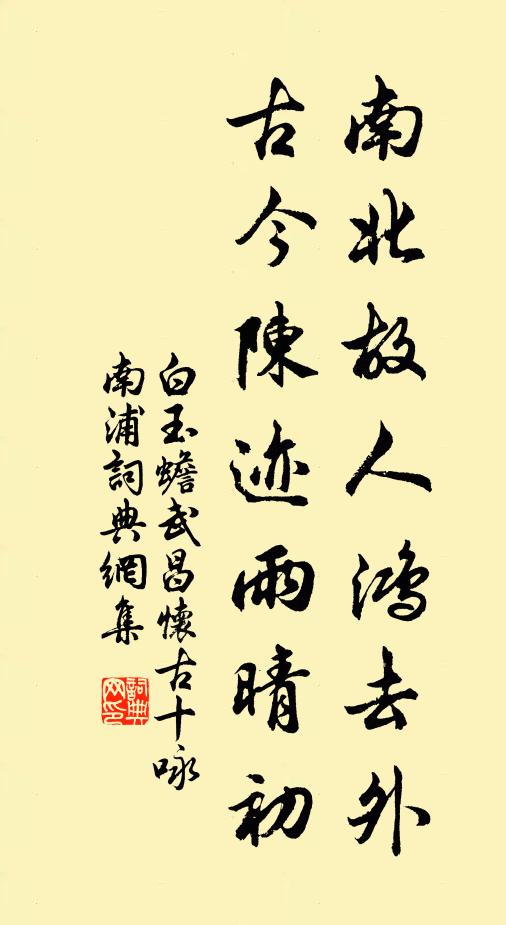 南北故人鸿去外
古今陳迹雨晴初
白玉蟾武昌懷古十咏
南浦詞典網集
詞典网印